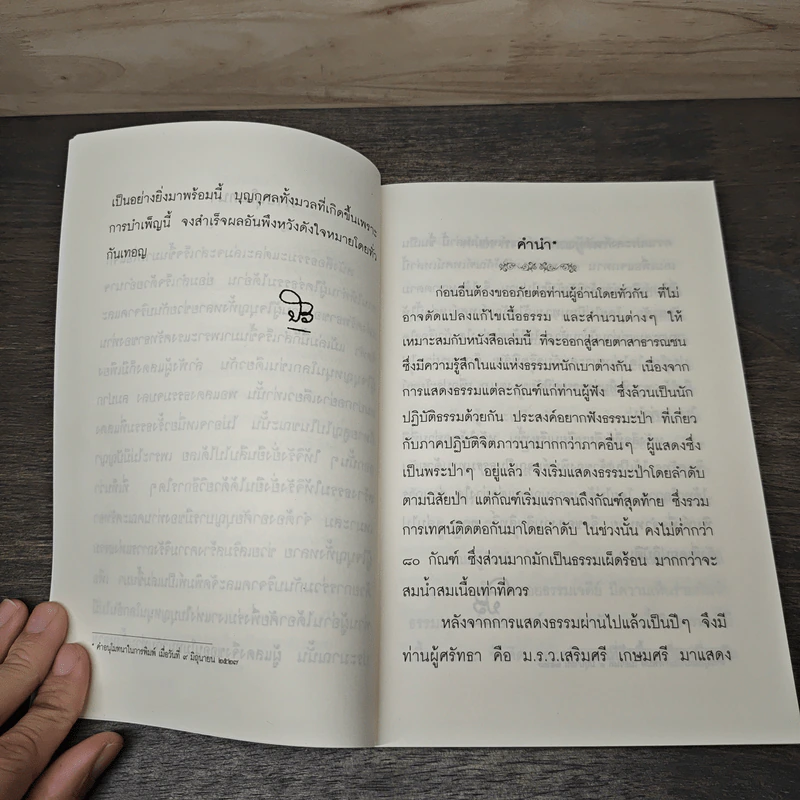 เป็นอย่างยิ่งมาพร้อมนี้ บุญกุศลทั้งมวลที่เกิดขึ้นเพราะ
การบำเพ็ญนี้ จงสำเร็จผลอันพึงหวังดังใจหมายโดยทั่ว
กันเทอญ
* คำอนุโมทนาในการพิมพ์ เมื่อวันที่ ๙ มิถุนายน ๒๕๒๙
คำนำ*
ก่อนอื่นต้องขออภัยต่อท่านผู้อ่านโดยทั่วกัน ที่ไม่
อาจดัดแปลงแก้ไขเนื้อธรรม และสำนวนต่างๆ ให้
เหมาะสมกับหนังสือเล่มนี้ ที่จะออกสู่สายตาสาธารณชน
ซึ่งมีความรู้สึกในแง่แห่งธรรมหนักเบาต่างกัน เนื่องจาก
การแสดงธรรมแต่ละกัณฑ์แก่ท่านผู้ฟัง ซึ่งล้วนเป็นนัก
ปฏิบัติธรรมด้วยกัน ประสงค์อยากฟังธรรมะป่า ที่เกี่ยว
กับภาคปฏิบัติจิตภาวนามากกว่าภาคอื่นๆ ผู้แสดงซึ่ง
เป็นพระป่าๆ อยู่แล้ว จึงเริ่มแสดงธรรมะป่าโดยลำดับ
ตามนิสัยป่า แต่กัณฑ์เริ่มแรกจนถึงกัณฑ์สุดท้าย ซึ่งรวม
การเทศน์ติดต่อกันมาโดยลำดับ ในช่วงนั้น คงไม่ต่ำกว่า
๘๐ กัณฑ์ ซึ่งส่วนมากมักเป็นธรรมเผ็ดร้อน มากกว่าจะ
สมน้ำสมเนื้อเท่าที่ควร
หลังจากการแสดงธรรมผ่านไปแล้วเป็นปีๆ จึงมี
ท่านผู้ศรัทธา คือ ม.ร.ว.เสริมศรี เกษมศรี มาแสดง